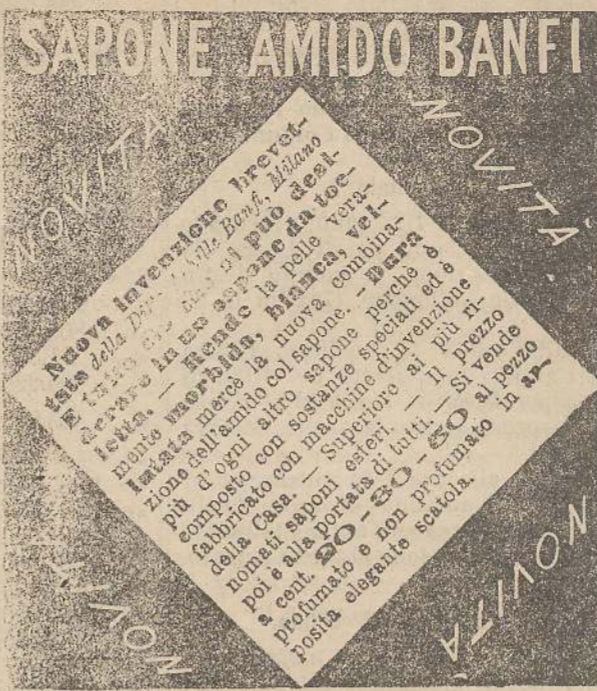 SAPONE AMIDO BANFI
NOVITÀ
NOVITÀ
Nuova invenzione brevet-
tata della Ditta Achille Banfi, Milano
È tutto ciò che si può desi-
derare in un sapone da toe-
letta. — Rende la pelle vera-
mente morbida, bianca, vel-
lutata mercè la nuova combina-
zione dell'amido col sapone. — Dura
più d'ogni altro sapone perchè è
composto con sostanze speciali ed è
fabbricato con macchine d'invenzione
della Casa. — Superiore ai più ri-
nomati saponi esteri. — Il prezzo
poi è alla portata di tutti. — Si vende
a cent. 20-30-50 al pezzo
profumato e non profumato in ap-
posita elegante scatola.
NOVITÀ
NOVITÀ